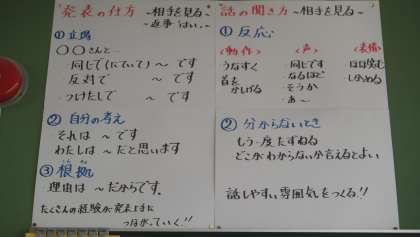 発表の仕方 〜相手を見る〜
〜返事 はい。〜
①立場
〇〇さんと…
同じで(にていて) 〜 です
反対で 〜 です
つけたして 〜 です
②自分の考え
それは 〜 です
わたしは 〜 だと思います
③根拠
理由は 〜 だからです。
たくさんの経験が発表上手に
つながっていく!!
話の聞き方 〜相手を見る〜
①反応
(動作) (声) (表情)
うなずく 同じです ほほ笑む
首を なるほど しかめる
かしげる そうか
あ〜
②分からないとき
もう一度たずねる
どこがわからないか言えるとよい
話しやすい雰囲気をつくる!!